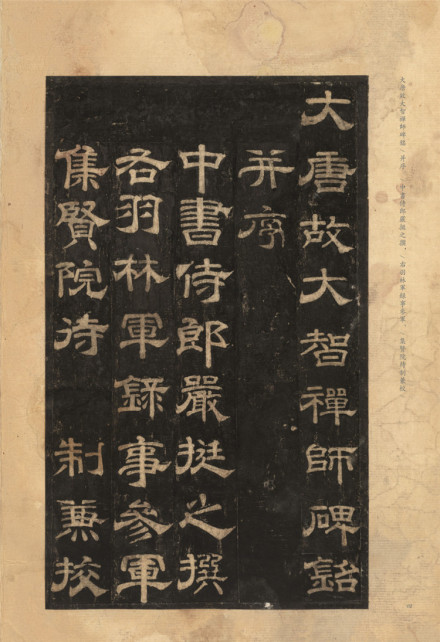 大唐故大智禪師碑銘
并序
中書侍郎嚴挺之撰
右羽林軍錄事參軍
集賢院待 制兼挍
大唐故大智禪師碑銘 并序 中書侍郎嚴挺之撰 右羽林軍錄事參軍 集賢院待制兼校